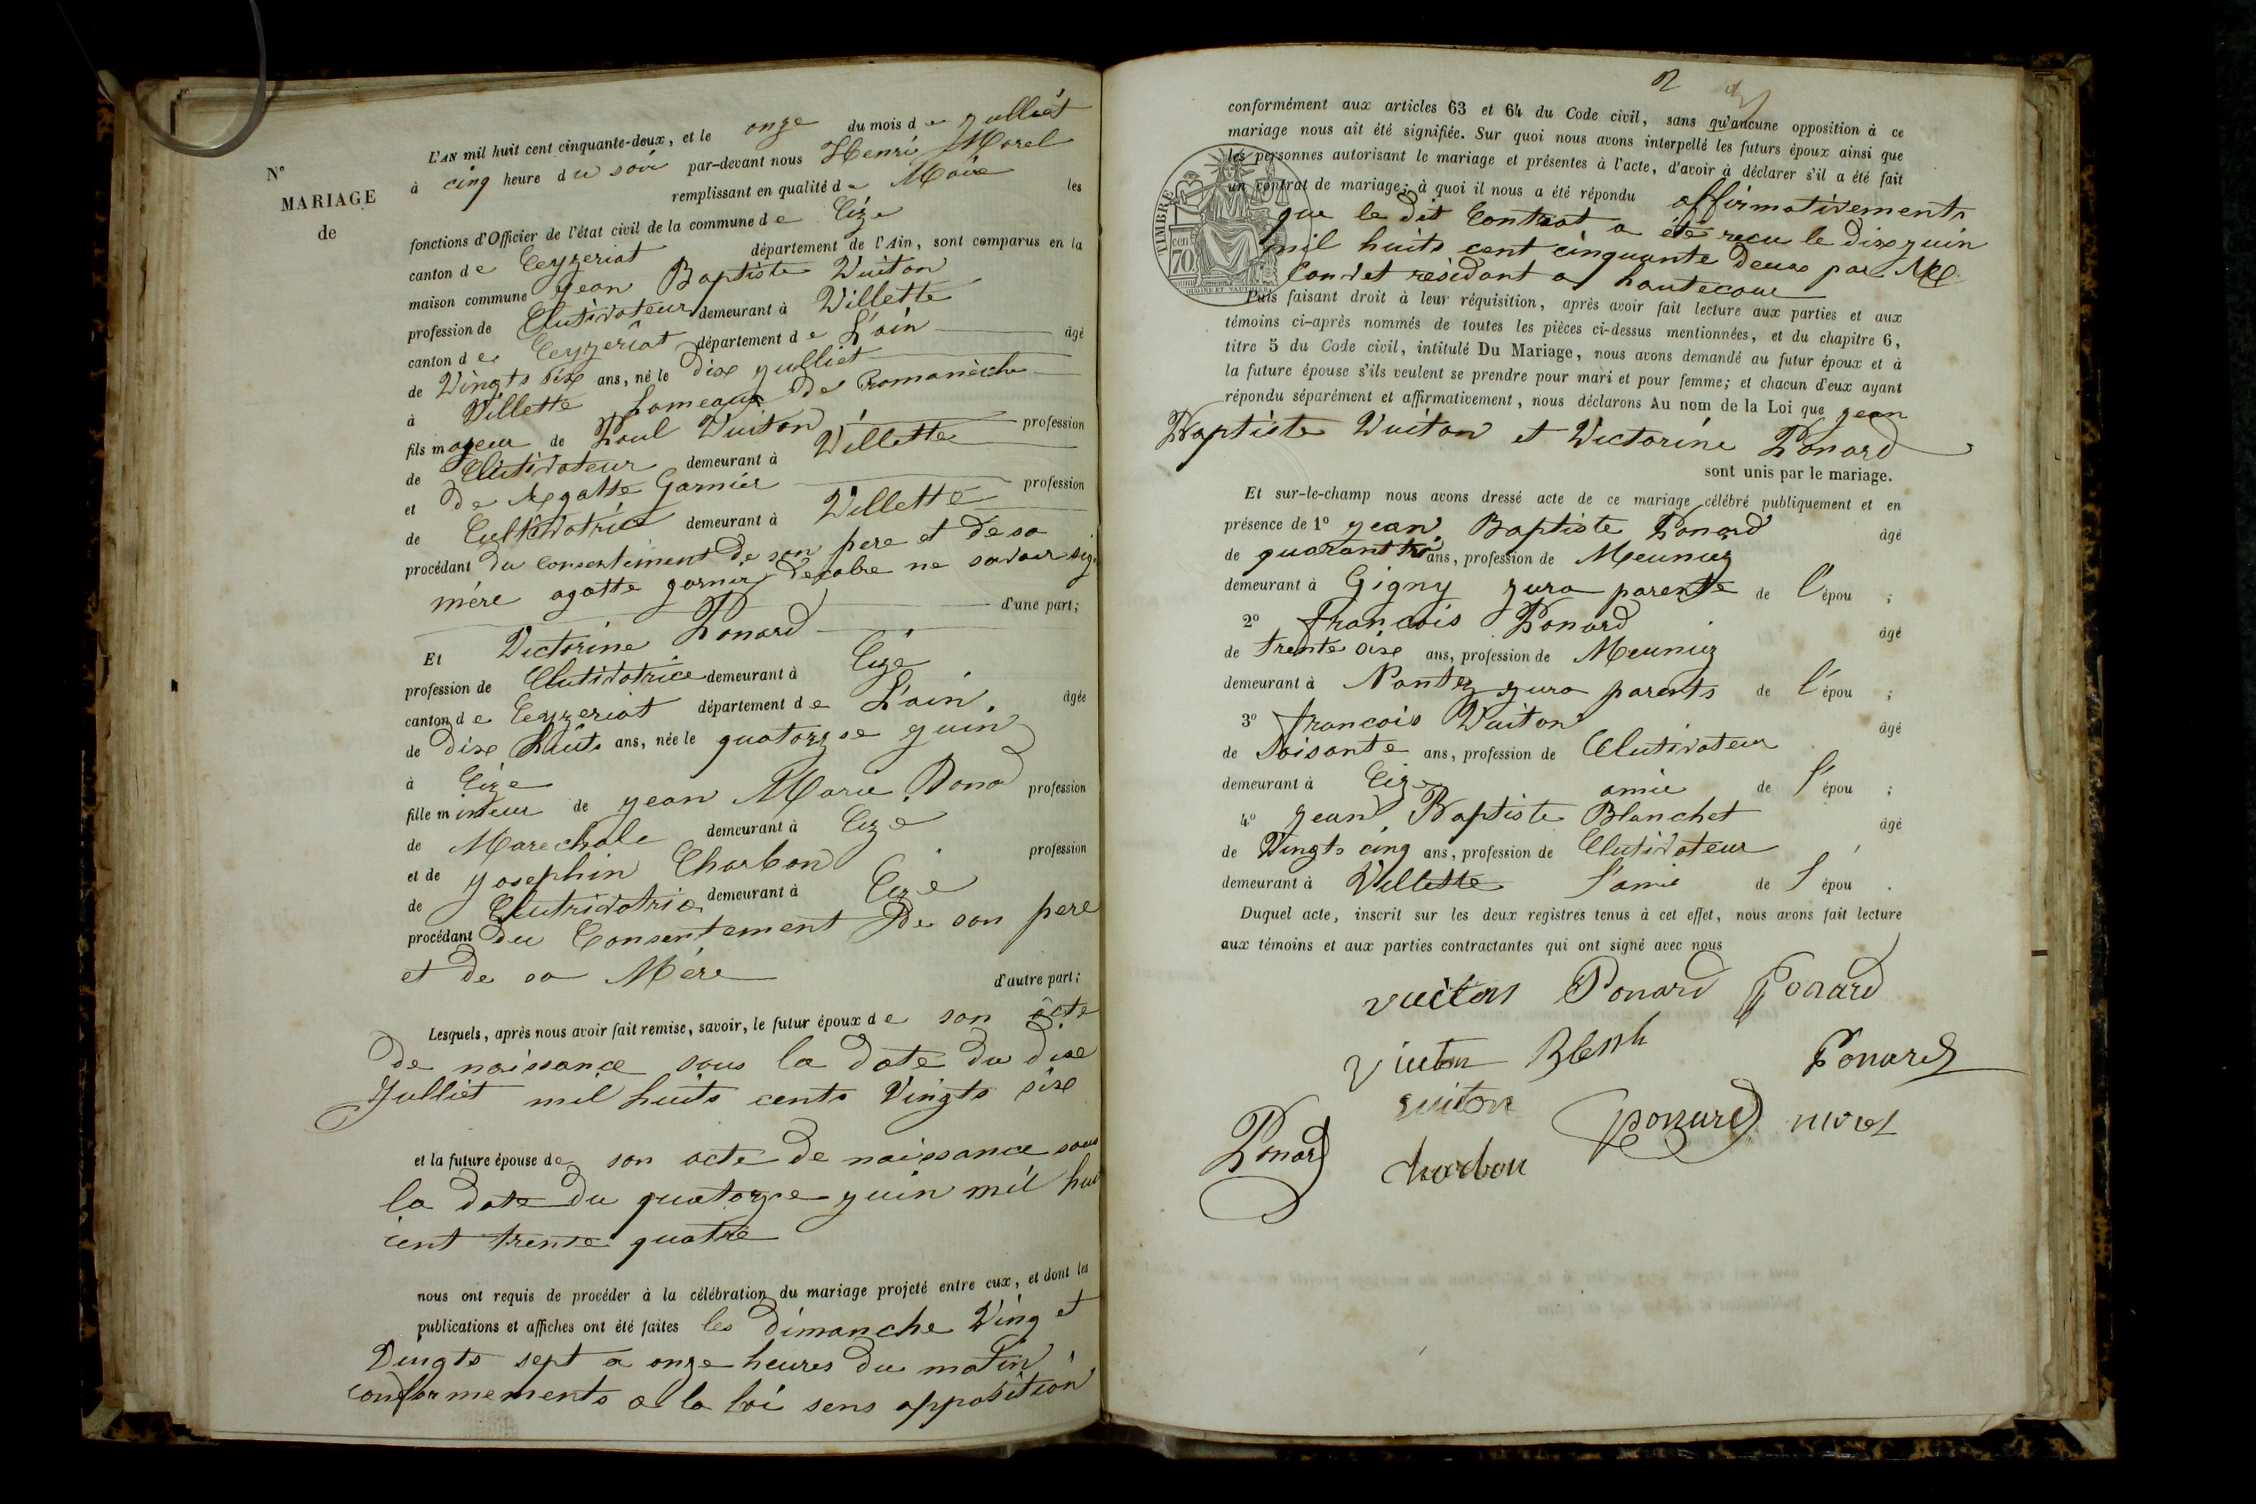 N°
MARIAGE
de
L'AN mil huit cent cinquante-deux, et le onze du mois de julliet
à cinq heure du soir par-devant nous Henri Morel
remplissant en qualité de Maire les
fonctions d'Officier de l'état civil de la commune de Cize
canton de Ceyzeriat département de l'Ain, sont comparus en la
maison commune jean Baptiste Vuiton
profession de Clutivateur demeurant à Villette
canton de Ceyzeriat département de L'ain âgé
de Vingts six ans, né le dix julliet
à Villette hameaux de Romanèche
fils majeur de Paul Vuiton profession
de Clutivateur demeurant à Villette
et de Agatte Garnier profession
de Cultivatrice demeurant à Villette
procédant du consentiment de son pere et de sa
mére agatte garnier ne savoir sig.
d'une part;
Et Victorine Ponard
profession de Clutivatrice demeurant à Cize
canton de Ceyzeriat département de L'ain âgée
de dix huits ans, née le quatorzse juin
à Cize
fille mineur de jean Marie Ponard profession
de Marechale demeurant à Cize
et de josephin Charbon profession
de Clutrivatrie demeurant à Cize
procédant du Consentement de son pere
et de sa Mére d'autre part;
Lesquels, après nous avoir fait remise, savoir, le futur époux de son acte
de naissance sous la date du dixe
Julliet mil huits cents Vingts sixe
et la future épouse de son acte de naissance sous
la date du quatorze juin mil hui
cent trente quatre
nous ont requis de procéder à la célébration du mariage projeté entre eux, et dont les
publications et affiches ont été faites les dimanche Ving et
Vingts sept a onze heures du matin
conformements a la loi sens apposition
2
conformément aux articles 63 et 64 du Code civil, sans qu'aucune opposition à ce
mariage nous ait été signifiée. Sur quoi nous avons interpellé les futurs époux ainsi que
les personnes autorisant le mariage et présentes à l'acte, d'avoir à déclarer s'il a été fait
un contrat de mariage; à quoi il nous a été répondu affirmativements
que le dit Contrat a été recu le dixe juin
mil huits cent cinquante deux par Me
résidant a hautecour
TIMBRE
cen
70
Puis faisant droit à leur réquisition, après avoir fait lecture aux parties et aux
témoins ci-après nommés de toutes les pièces ci-dessus mentionnées, et du chapitre 6,
titre 5 du Code civil, intitulé Du Mariage, nous avons demandé au futur époux et à
la future épouse s'ils veulent se prendre pour mari et pour femme; et chacun d'eux ayant
répondu séparément et affirmativement, nous déclarons Au nom de la Loi que jean
Baptiste Vuiton et Victorine Ponard
sont unis par le mariage.
Et sur-le-champ nous avons dressé acte de ce mariage célébré publiquement et en
présence de 1° jean Baptiste Ponard âgé
de ans, profession de Meunier
demeurant à Gigny jura parente de l'épou ;
2° francois Ponard âgé
de trente sixe ans, profession de Meunier
demeurant à jura parents de l'épou ;
3° francois Vuiton âgé
de Soisante ans, profession de Clutivateur
demeurant à Cize amie de l'épou ;
4° jean Baptiste Blanchet âgé
de Vingts cinq ans, profession de Clutivateur
demeurant à Villette l'amie de l'épou .
Duquel acte, inscrit sur les deux registres tenus à cet effet, nous avons fait lecture
aux témoins et aux parties contractantes qui ont signé avec nous
vuiton Ponard Ponard
Viuton Ponard
vuiton ponard
Ponard charbon